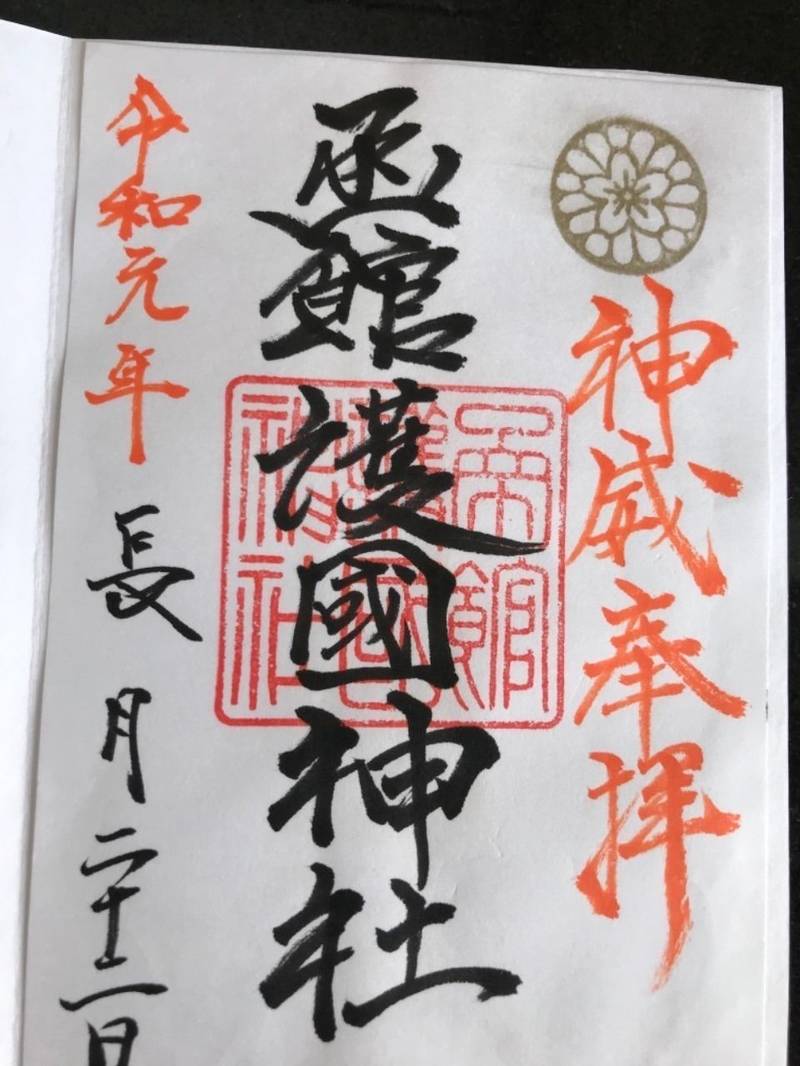 神威奉拝
函館護國神社
函館護國神社
令和元年 長月二十二日